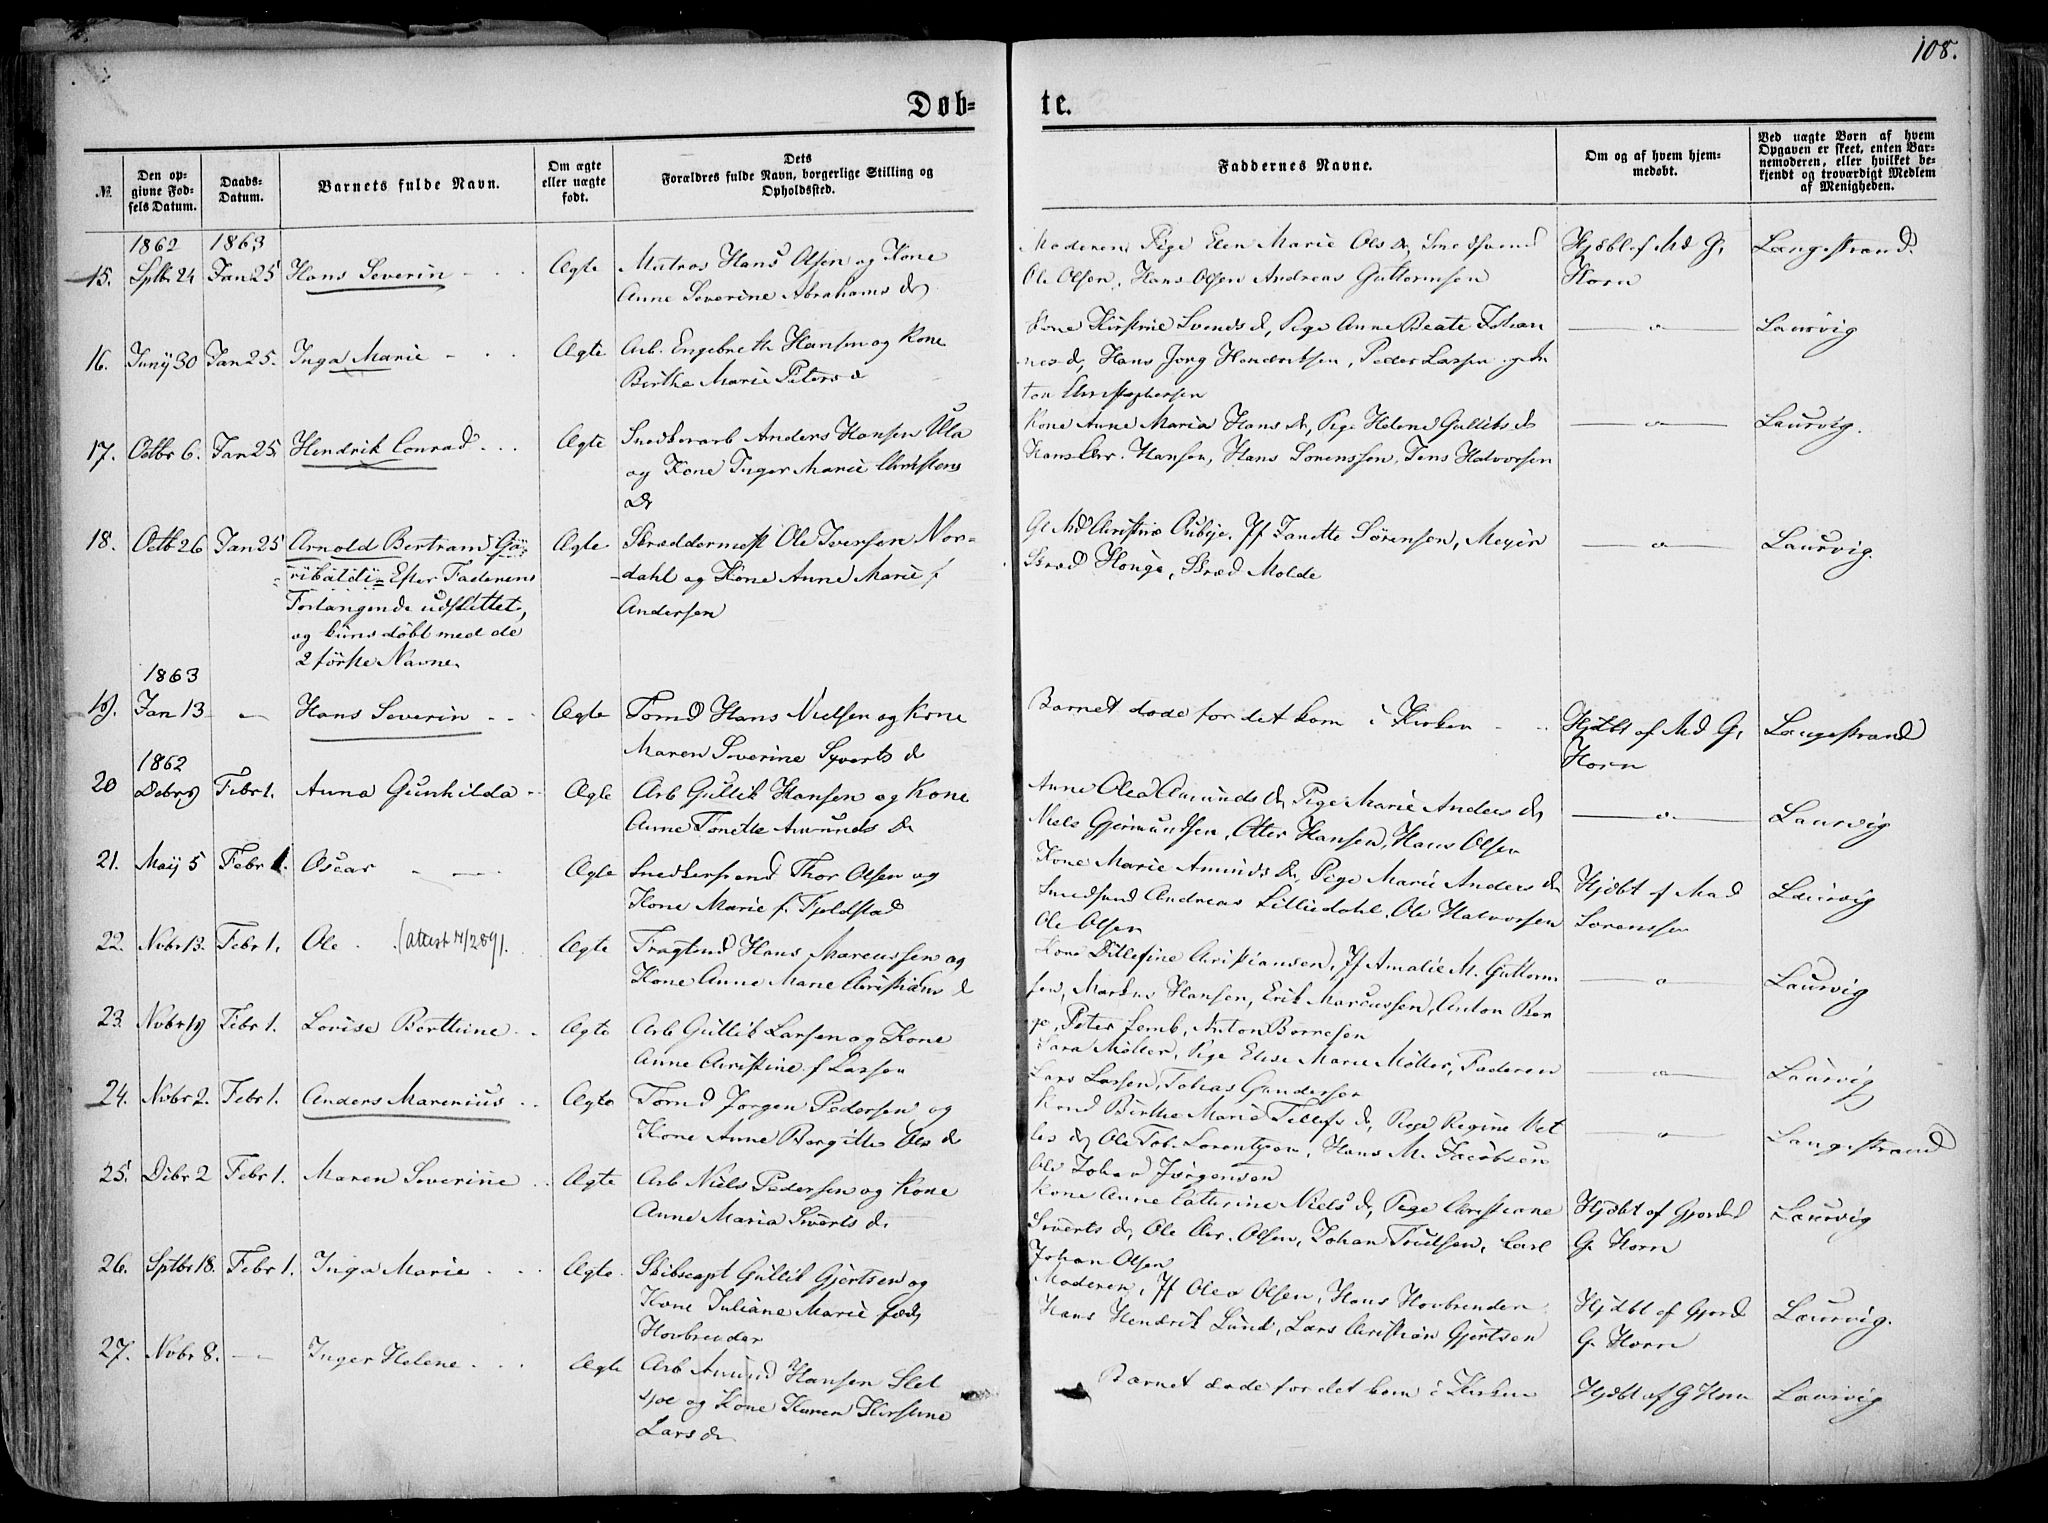 108.
Døb=
te.
№
Den op-
givne Fød-
sels Datum.
Daabs-
Datum.
Barnets fulde Navn.
Om ægte
eller uægte
født.
Dets
Forældres fulde Navn, borgerlige Stilling og
Opholdssted.
Faddernes Navne.
Om og af hvem hjem-
medøbt.
Ved uægte Børn af hvem
Opgaven er skeet, enten Bar-
nemoderen, eller hvilket be-
kjendt og troværdigt Medlem
af Menigheden.
1862 1863
15. Sptbr 24 Jan 25 Hans Severin Ægte Matros Hans Olsen og Kone
Anne Severine Abrahams D
Moderen, Pige Elen Marie Ols D, Smedsvend
Ole Olsen, Hans Olsen Andreas Guttormsen
Hjdbt af Md G.
Horn
Langestrand
16. Juny 30 Jan 25. Inga Marie Ægte Arb. Engebreth Hansen og Kone
Birthe Marie Peters d
Kone Kirstine Svends d, Pige Anne Beate Johan
nes d, Hans Jørg Hendriksen, Peder Larsen, An
ton Christophersen
— " — Laurvig
17. Octbr 6. Jan 25 Hendrik Conrad Ægte Snedkerarb Anders Hansen Ula
og Kone Inger Marie Christens
D
Kone Anne Maria Hans D, Pige Helene Gulliks d
Hans Chr. Hansen, Hans Sørenssen, Jens Halvorsen
— " — Laurvig.
18. Octb 26 Jan 25 Arnold Bertrand Ga-
ribaldi Efter Faderens
Forlangende udslettet,
og kuns døbt med de
2 første Navne.
Ægte Skræddermest Ole Iversen Nor-
dahl og Kone Anne Marie f
Andersen
Jf Janette Sørensen, Meyer
Skræd Honge, Skræd Molde
— " — Laurvig.
1863
19. Jan 13 — Hans Severin Ægte Tømd Hans Nielsen og Kone
Maren Severine Syverts d
Barnet døde før det kom i Kirken
Hjdbt af Md G.
Horn
Langestrand
1862
20 Debr 9 Febr 1. Anna Gunhilda Ægte Arb Gullik Hansen og Kone
Anne Tonette Amunds D
Anne Olea Amunds D, Pige Marie Anders D
Niels Gjermundsen, Otter Hansen, Hans Olsen
— " — Laurvig
21. May 5 Febr 1. Oscar Ægte Snedkersvend Thor Olsen og
Kone Marie f. Fjeldstad
Kone Marie Amunds D, Pige Marie Anders D
Smedsvend Andreas Lilliedahl, Ole Halvorsen
Ole Olsen
Hjdbt af Mad
Sørenssen
Laurvig
22. Nvbr 13. Febr 1. Ole (attest 7/2 891. Ægte Fragtmd Hans Marcussen og
Kone Anne Marie Christians d
Kone Dillefine Christiansen, Jf Amalie M. Guttorm
sen, Markus Hansen, Erik Marcussen, Anton Bor
ge, Peter Lemb, Anton Borresen
— " — Laurvig
23. Nvbr 19 Febr 1. Lovise Berthine Ægte Arb Gullik Larsen og Kone
Anne Christine f Larsen
Sara Møller, Pige Elise Marie Møller, Faderen
Lars Larsen, Tobias Gundersen
— " — Laurvig
24. Nvbr 2. Febr 1. Anders Marenius Ægte Tømd Jørgen Pedersen og
Kone Anne Bergitte Ols d
Kone Birthe Marie Tellefs d, Pige Regine Net
les d, Ole Tob. Lorentzen, Hans M. Jacobsen
Ole Johan Jørgensen
— " — Langestrand
25. Debr 2 Febr 1. Maren Severine Ægte Arb Niels Pedersen og Kone
Anne Maria Siverts d.
Kone Anne Cathrine Niels d, Pige Christiane
Siverts d, Ole Chr. Olsen, Johan Trulsen, Carl
Johan Olsen
Hjdbt af Gjordm
G. Horn
Laurvig
26. Sptbr 18. Febr 1. Inga Marie Ægte Skibscapt Gullik Gjertsen og
Kone Juliane Marie født
Hovbrender
Moderen, Jf Olea Olsen, Hans Hovbrender
Hans Hendrik Lund, Lars Christian Gjertsen
Hjdbt af Gjord
G. Horn
Laurvig.
27. Nvbr 8. — Inger Helene Ægte Arb Amund Hansen Slet
sjøe og Kone Karen Kirstine
Lars d
Barnet døde før det kom i Kirken
Hjdbt af G Horn
Laurvig